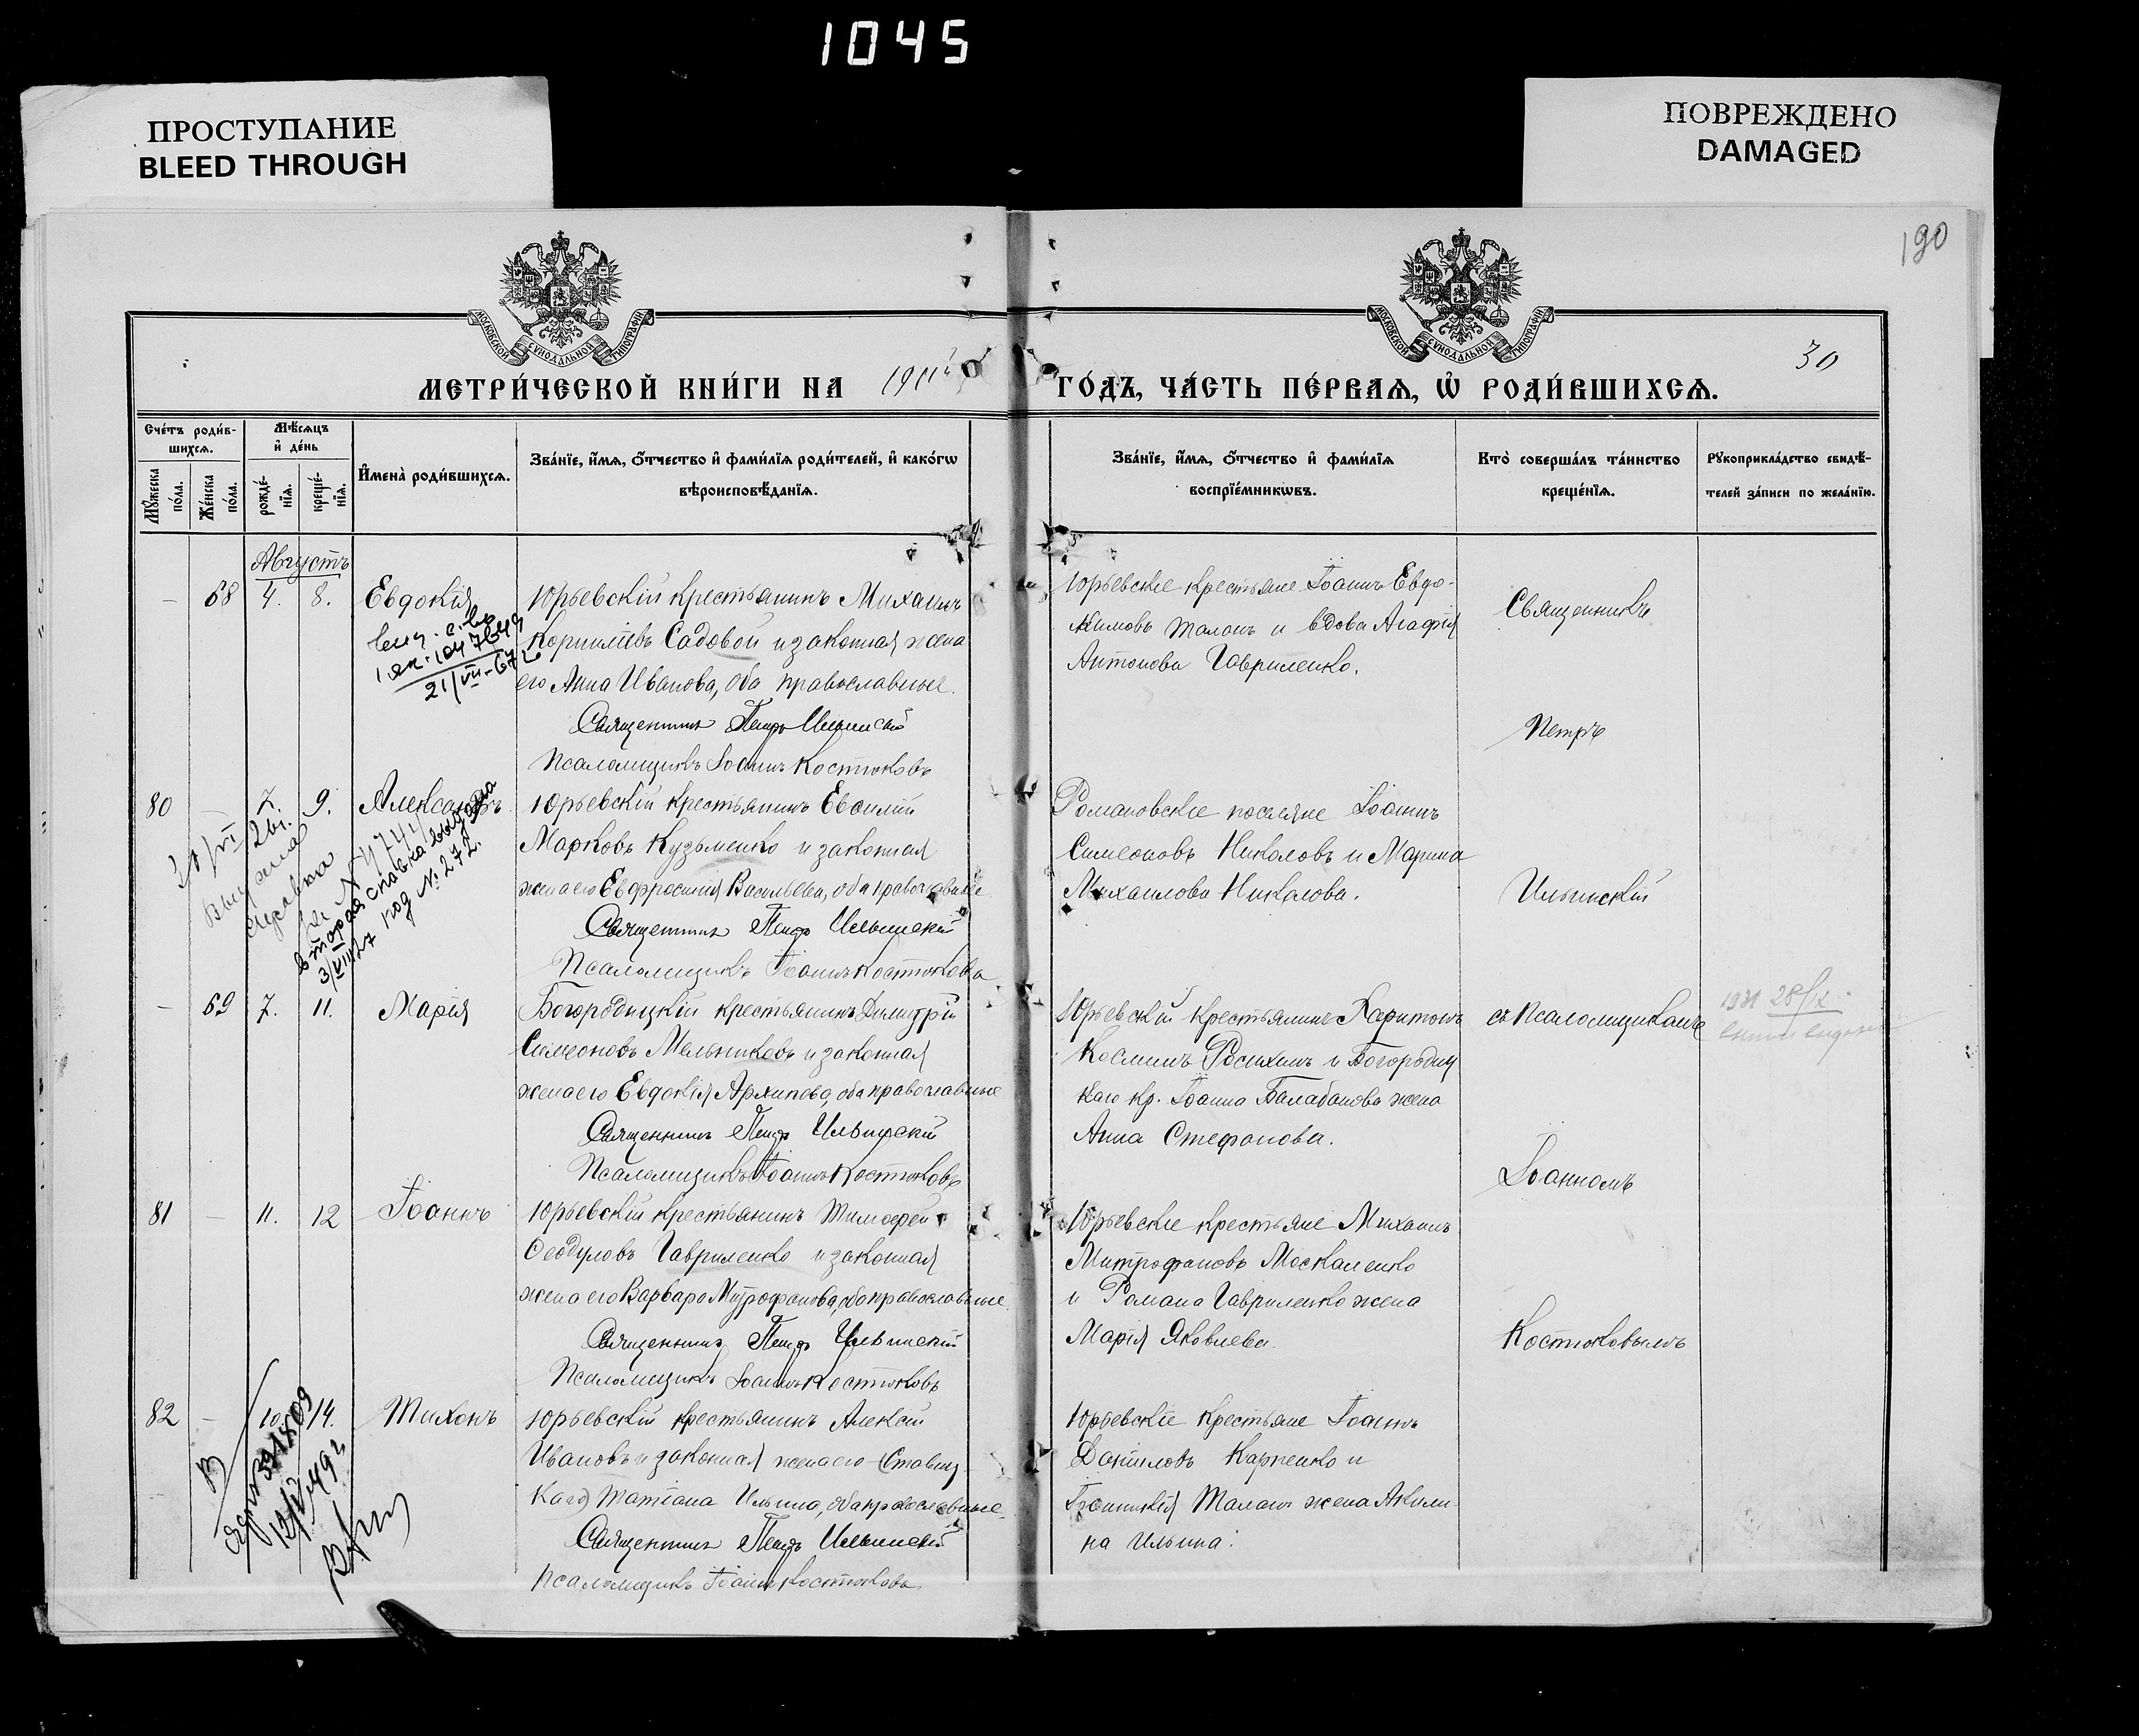 1045
ПРОСТУПАНИЕ
BLEED THROUGH
ПОВРЕЖДЕНО
DAMAGED
190
30
МОСКОВСКОЙ СѴНОДАЛЬНОЙ ТИПОГРАФІИ
МОСКОВСКОЙ СѴНОДАЛЬНОЙ ТИПОГРАФІИ
МЕТРИ́ЧЕСКОЙ КНИ́ГИ НА 1911й ГО́ДЪ, ЧА́СТЬ ПЕ́РВАѦ, Ѡ҆ РОДИ́ВШИХСѦ.
Сче́тъ роди́в-
шихсѧ.
Мѣ́сѧцъ
и҆ де́нь
Мꙋ́жеска
по́ла.
Же́нска
по́ла.
рожде́-
нїѧ.
креще́-
нїѧ.
И҆мена̀ роди́вшихсѧ.
Зва́нїе, и҆́мѧ, ѻ҆́тчество и҆ фами́лїѧ роди́телей, и҆ како́гѡ
вѣроисповѣ́данїѧ.
Зва́нїе, и҆́мѧ, ѻ҆́тчество и҆ фами́лїѧ
воспрїе́мникѡвъ.
Кто̀ соверша́лъ та́инство
креще́нїѧ.
Рꙋкоприкла́дство свидѣ́-
телей за́писи по жела́нїю.
Августъ
— 68 4. 8. Евдокія
21/VII-67
Юрьевскій крестьянинъ Михаилъ
Корниліевъ Садовой и законная жена
его Анна Иванова, оба православные.
Священникъ Петръ Ильинскій
Псаломщикъ Іоаннъ Костюковъ
Юрьевскіе крестьяне Іоаннъ Евдо-
кимовъ Малашъ и вдова Агафія
Антонова Гавриленко.
Священникъ
Петръ
80 — 7. 9. Александръ
Выдана
справка
вторая справка выдана
3/VIII 27 под № 272.
Юрьевскій крестьянинъ Евсимій
Марковъ Кузьменко и законная
жена его Евфросинія Васильева, оба православные
Священникъ Петръ Ильинскій
Псаломщикъ Іоаннъ Костюковъ
Романовскіе поселяне Іоаннъ
Симеоновъ Николовъ и Марина
Михаилова Николова.
Ильинскій
— 69 7. 11. Марія
Богородицкій крестьянинъ Димитрій
Симеоновъ Мельниковъ и законная
жена его Евдокія Архипова, оба православные
Священникъ Петръ Ильинскій
Псаломщикъ Іоаннъ Костюковъ
Юрьевскій крестьянинъ Харитонъ
Косминъ и Богородиц
каго кр. Іоанна Балабанова жена
Анна Стефанова.
съ Псаломщикомъ
1931 28/IX
Іоанномъ
81 — 11. 12 Іоаннъ
Юрьевскій крестьянинъ Тимофей
Феодуловъ Гавриленко и законная
жена его Варвара Митрофанова, оба православные.
Священникъ Петръ Ильинскій
Псаломщикъ Іоаннъ Костюковъ
Юрьевскіе крестьяне Михаилъ
Митрофановъ Москаленко
и Романа Гавриленко жена
Марія Яковлева.
Костюковымъ
82 — 10. 14. Тихонъ
Юрьевскій крестьянинъ Алексій
Ивановъ и законная жена его
Татіана Ильина, оба православные.
Священникъ Петръ Ильинскій
Псаломщикъ Іоаннъ Костюковъ
Юрьевскіе крестьяне Іоаннъ
Даніиловъ Карпенко и
Малаш жена Акили-
на Ильина.